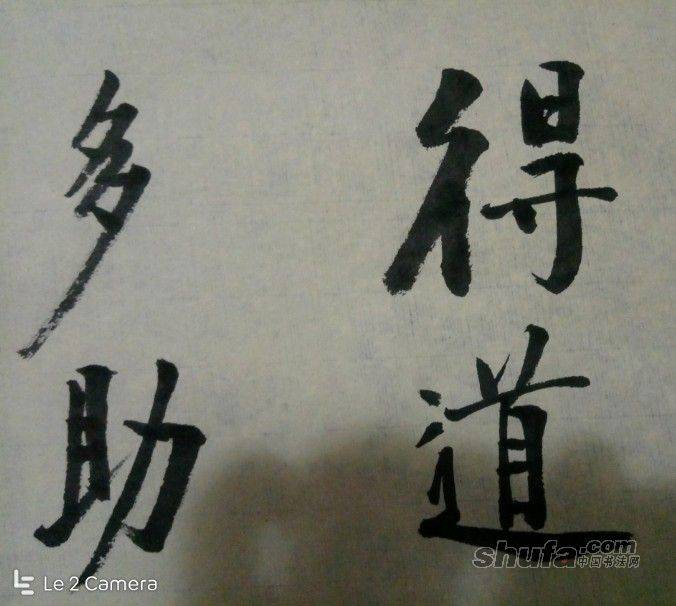 得道
多助
shufa.com
中国书法网
Le 2 Camera